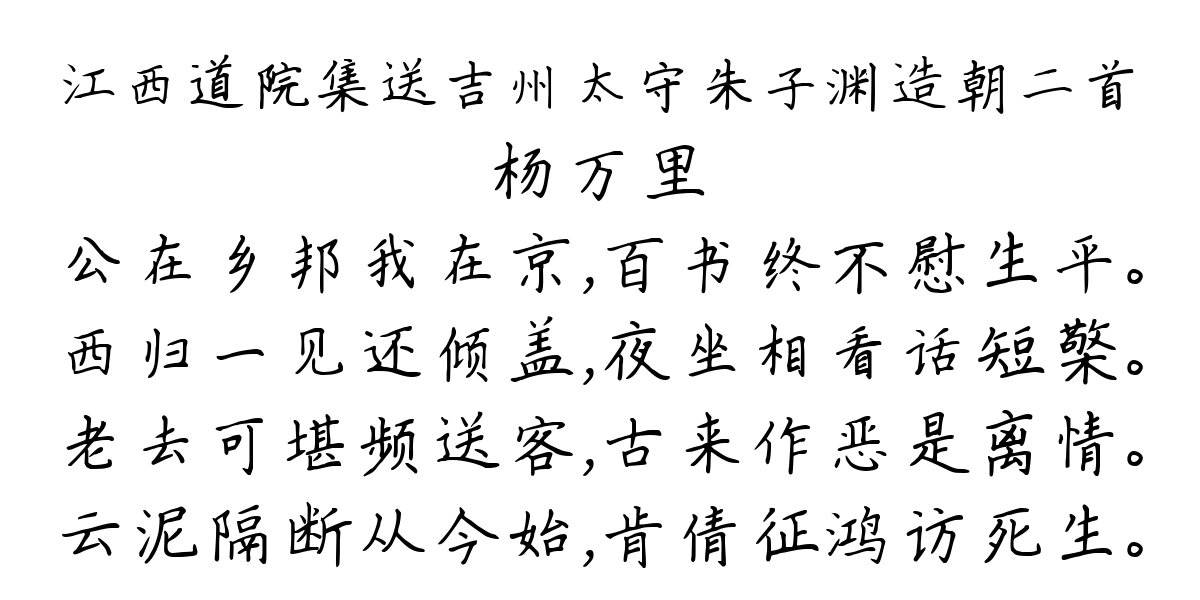 江西道院集送吉州太守朱子渊造朝二首
杨万里
公在乡邦我在京,百书终不慰生平。
西归一见还倾盖,夜坐相看话短檠。
老去可堪频送客,古来作恶是离情。
云泥隔断从今始,肯倩征鸿访死生。